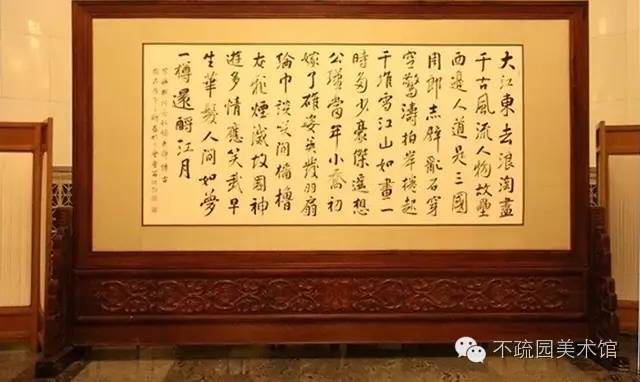 大江東去浪淘盡
千古風流人物故壘
西邊人道是三國
周郎赤壁亂石穿
空驚濤拍岸捲起
千堆雪江山如畫一
時多少豪傑遙想
公瑾當年小喬初
嫁了雄姿英發羽扇
綸巾談笑間檣櫓
灰飛煙滅故國神
遊多情應笑我早
生華髮人間如夢
一樽還酹江月
不疏园美术馆